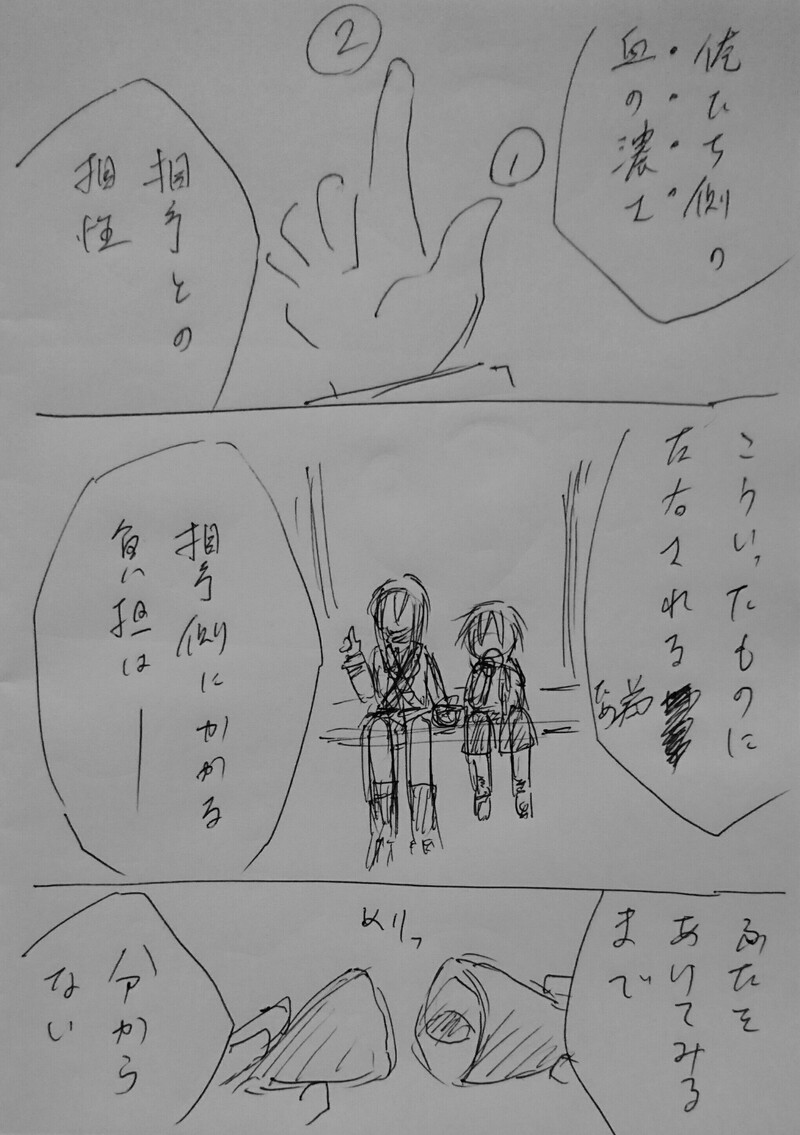 俺たち側の
血の濃さ
①
②
相手との
相性
こういったものに
左右される
為
相手側にかかる
負い担は――
ふたを
あけてみる
まで
メリッ
分から
ない